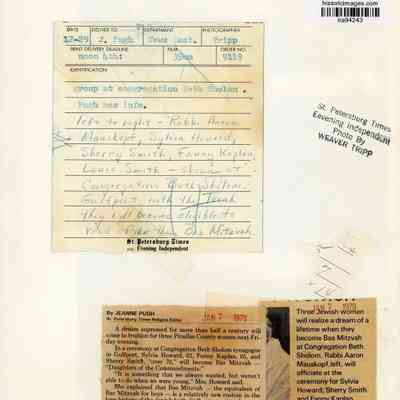 historicimages.com
ira94243
DATE DELIVER TO DEPARTMENT PHOTOGRAPHER
12-29 J. Pugh News Feat. Tripp
PRINT DELIVERY DEADLINE FILM ORDER NO
noon 4th: 35mm 9119
IDENTIFICATION
group at congregation Beth Sholom.
Pugh has info.
left to right - Rabbi Aaron
Mauskopf, Sylvia Howard,
Sherry Smith, Fanny Kaplan,
Louis Smith - shown at
Congregation Beth Sholom
Gulfport with the Torah
they will become eligible to
read after their Bas Mitzvah.
St. Petersburg Times
and Evening Independent
St. Petersburg Times
Evening Independent
Photo By
WEAVER TRIPP
By JEANNE PUGH
St. Petersburg Times Religion Editor
JAN 7 1979
A dream supressed for more than half a century will
come to fruition for three Pinellas County women next Fri-
day evening.
In a ceremony at Congregation Beth Sholom synagogue
in Gulfport, Sylvia Howard, 62, Fanny Kaplan, 65, and
Sherry Smith, "over 70," will become Bas Mitzvah —
"Daughters of the Commandments."
"It is something that we always wanted, but weren't
able to do when we were young," Mrs. Howard said.
She explained that Bas Mitzvah — the equivalent of
Bar Mitzvah for boys — is a relatively new custom in the
JAN 7 1979
Three Jewish women
will realize a dream of a
lifetime when they
become Bas Mitzvah
at Congregation Beth
Sholom. Rabbi Aaron
Mauskopf, left, will
officiate at the
ceremony for Sylvia
Howard, Sherry Smith
and Fanny Kaplan